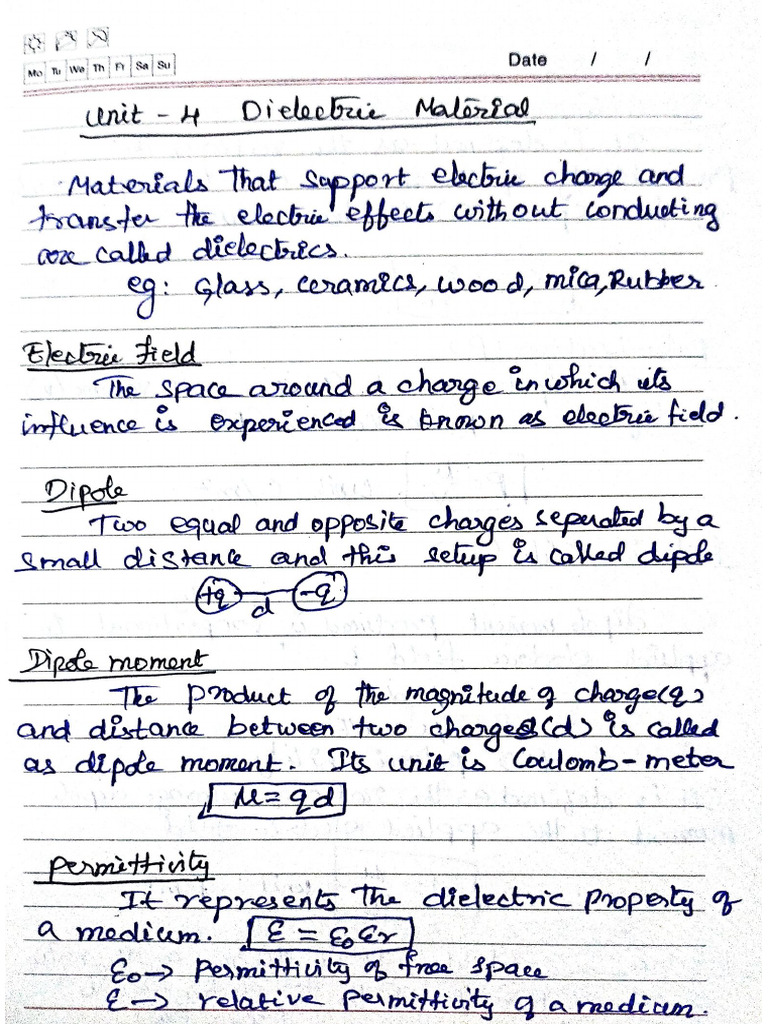 Mo Tu We Th Fr Sa Su
Date / /
Unit - 4 Dielectric Material
Materials that support electric charge and
transfer the electric effects without conducting
are called dielectrics.
eg: Glass, ceramics, wood, mica, Rubber.
Electric field
The space around a charge in which its
influence is experienced is known as electric field.
Dipole
Two equal and opposite charges seperated by a
small distance and this setup is called dipole
+q d -q
Dipole moment
The product of the magnitude of charge(q)
and distance between two charges(d) is called
as dipole moment. Its unit is Coulomb-meter
μ = qd
Permittivity
It represents the dielectric property of
a medium. ε = ε₀ εr
ε₀ → Permittivity of free space
ε → relative permittivity of a medium.